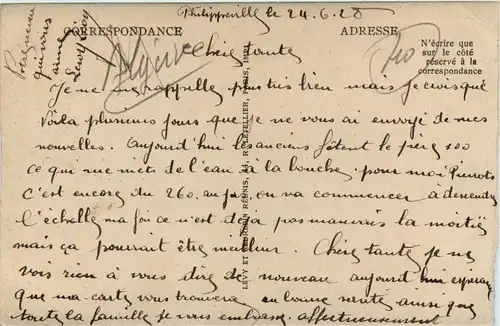 Philippeville le 24.6.28
CORRESPONDANCE
ADRESSE
N'écrire que
sur le côté
réservé à la
correspondance
Algérie
Chère tante
Je ne me rappelle plus très bien mais je crois que
Voila plusieurs jours que je ne vous ai envoyé de mes
nouvelles. Aujourd'hui les anciens fêtent le père 100
ce qui me mets de l'eau à la bouche pour moi Pierrots
c'est encore du 260. au jus on va commencer à descendre
l'échelle ma foi ce n'est déjà pas mauvais la moitié
mais ça pourrait être meilleur. Chère tante je ne
vois rien à vous dire de nouveau aujourd'hui espérant
que ma carte vous trouvera en bonne santé ainsi que
toute la famille je vous embrasse affectueusement
qui vous
aime
LÉVY ET NEURDEIN RÉUNIS, 44, R. LETELLIER, PARIS, IMP.